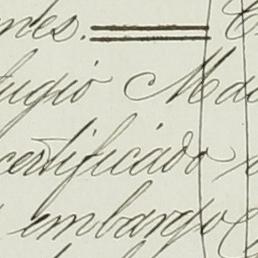 nes.
fugio Mac
certificado
embargo